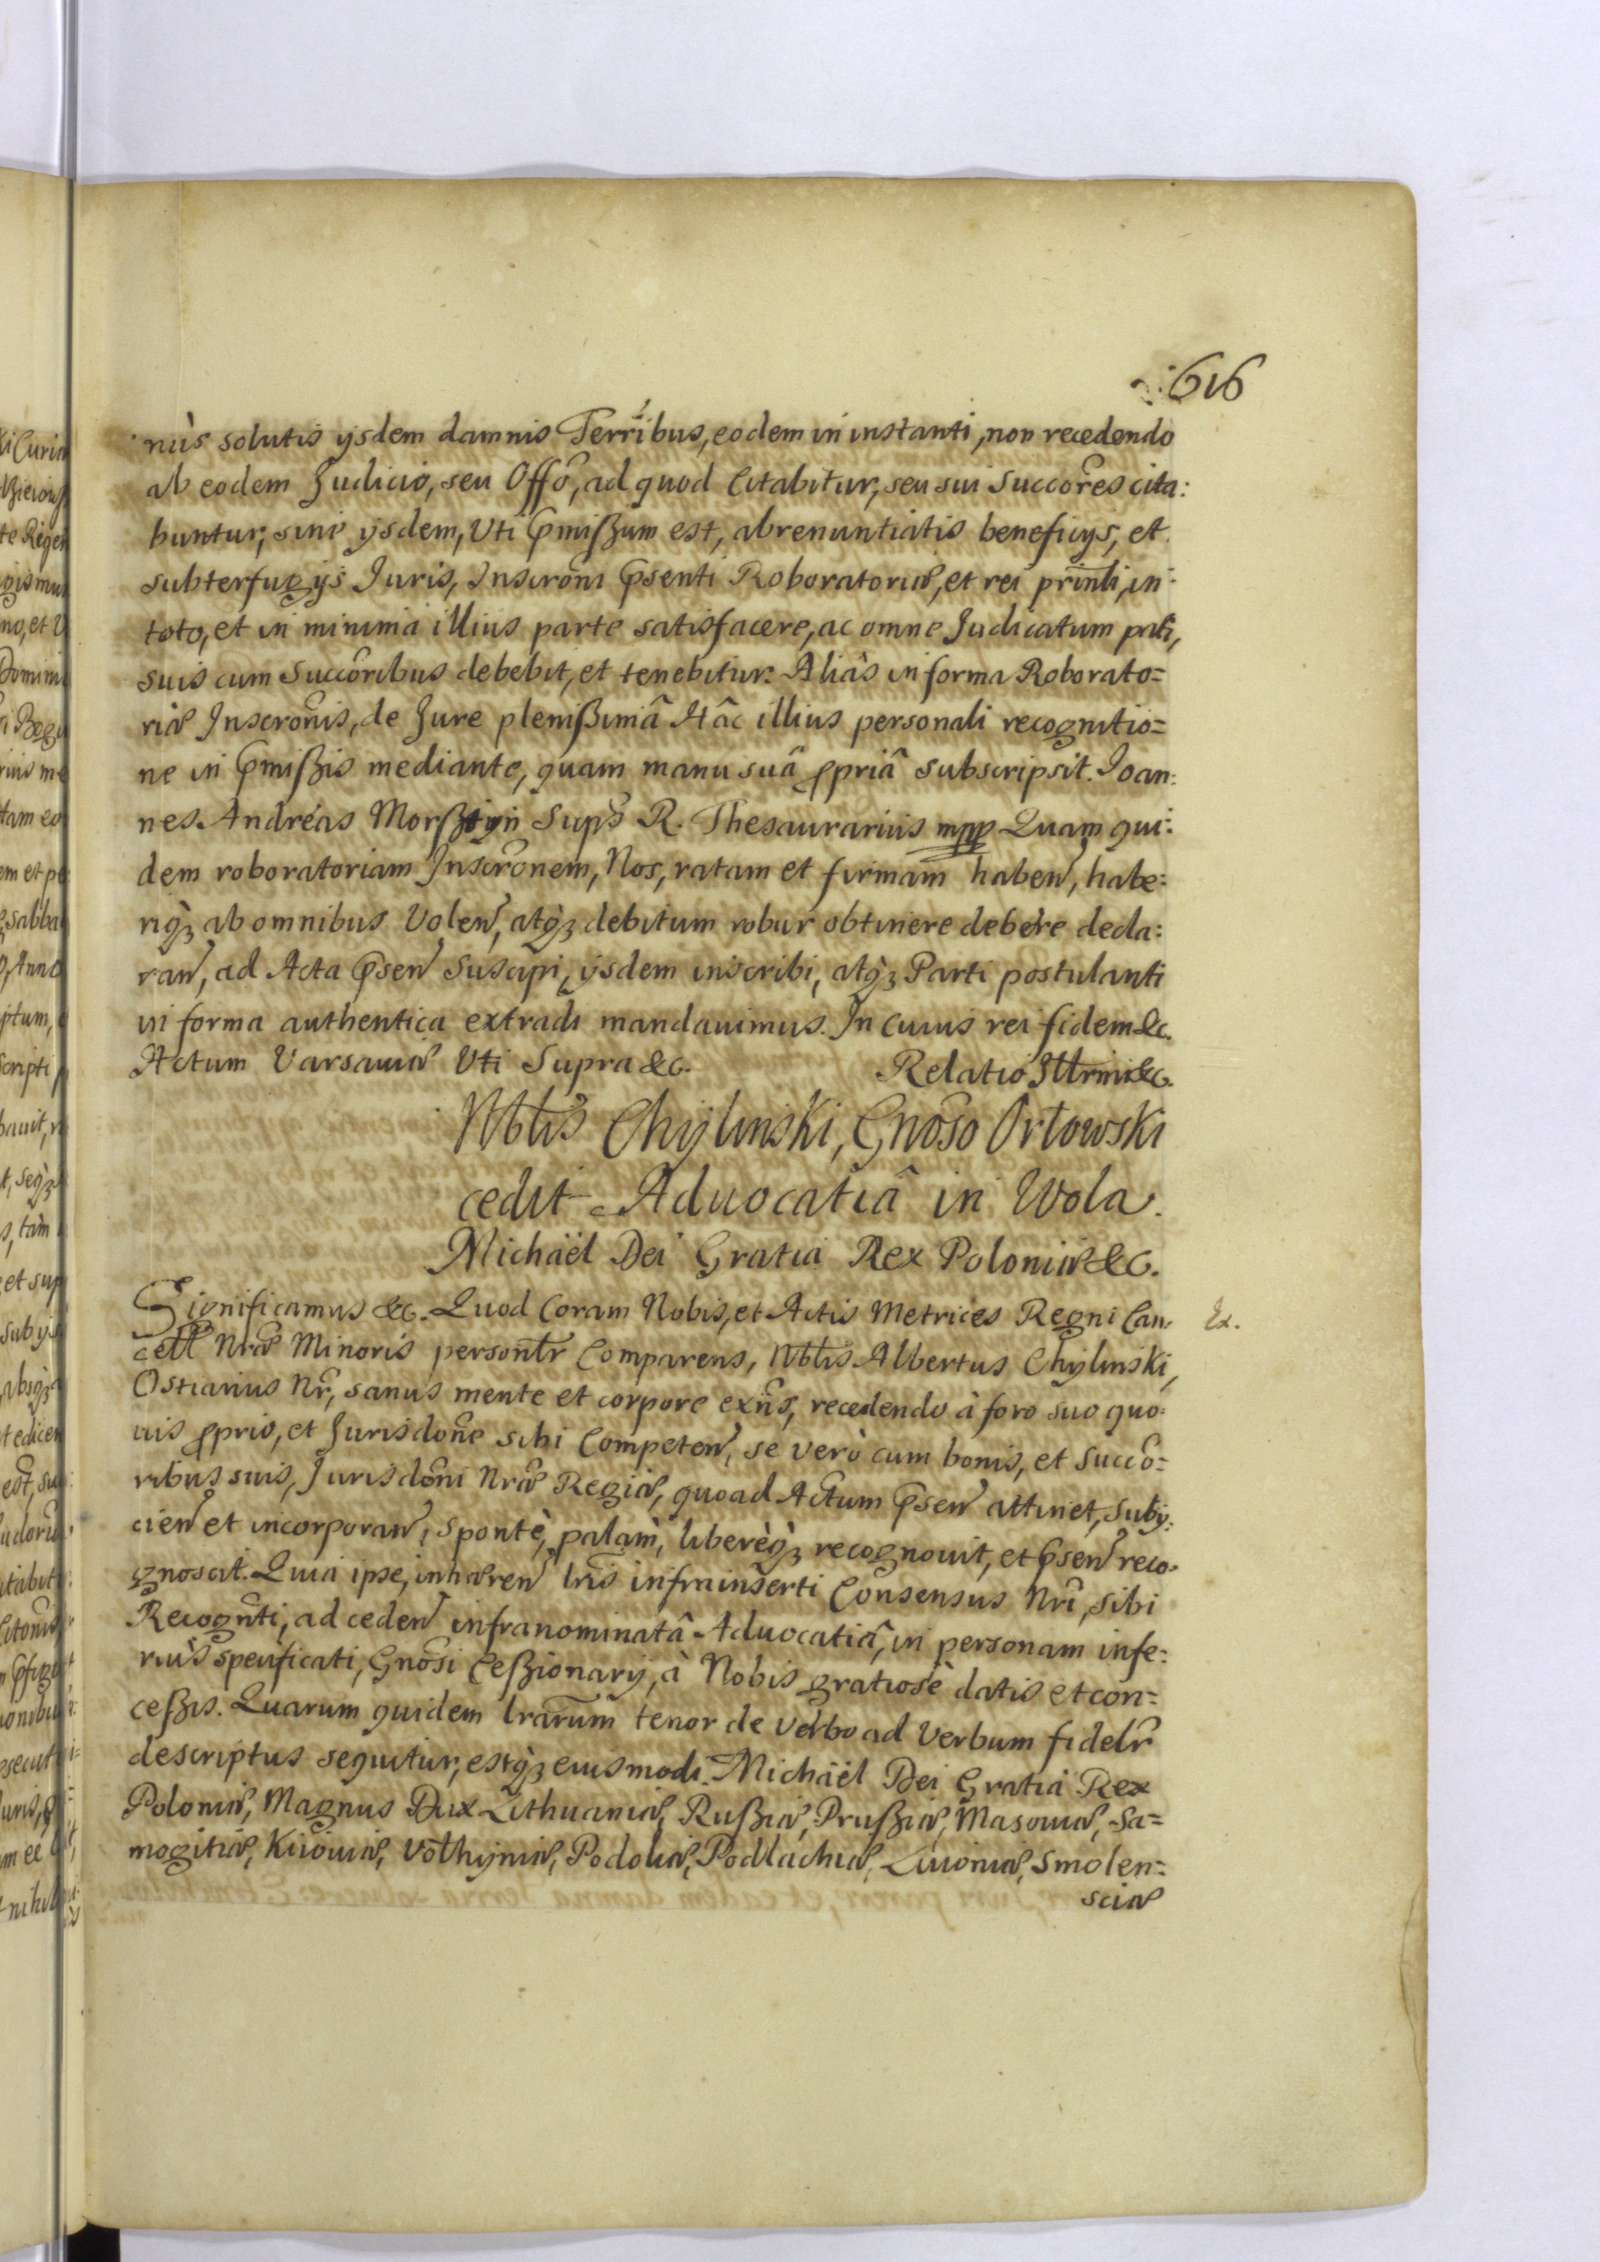 616
niis solutis ysdem damnis Terribus, eodem in instanti, non recedendo
ab eodem Judicio, seu Offo, ad quod Citabitur, seu sui Succores cita:
buntur, sine ysdem, Uti Pmißum est, abrenuntiatis beneficijs, et
subterfugijs Juris, Inscroni Psenti Roboratoriæ, et rei prinli, in
toto, et in minima illius parte satisfacere, ac omne Judicatum pati,
suis cum Succoribus debebit, et tenebitur. Aliàs in forma Roborato=
riæ Inscronis, de Jure plenißimâ Hâc illius personali recognitio=
ne in Pmißis mediante, quam manu suâ ppriâ Subscripsit. Joan:
nes Andréas Morßtyn Sups R. Thesaurarius mpp Quam qui:
dem roboratoriam Inscronem, Nos, ratam et firmam haben, habe:
riq; ab omnibus Volen, atq; debitum robur obtinere debere decla:
ran, ad Acta Psen Suscipi, ysdem inscribi, atq; Parti postulanti
in forma authentica extradi mandavimus. In Cuius rei fidem &c.
Actum Varsaviæ Uti Supra &c. Relatio Illrmi &c.
Nblis Chylinski, Gnoso Orłowski
cedit Advocatiâ in Wola.
Michaël Dei Gratia Rex Poloniæ &c.
Significamus &c. Quod Coram Nobis, et Actis Metrices Regni Can: Ex.
cell Nræ Minoris personlr Comparens, Nblis Albertus Chylinski,
Ostiarius Nr, sanus mente et corpore exns, recedendo à foro suo quo:
vis pprio, et Jurisdone sibi Competen, se verò cum bonis, et Succo=
ribus suis, Jurisdoni Nræ Regiæ, quoad Actum Psen attinet, subij:
cien et incorporan, Spontè, palàm, liberèq; recognovit, et Psen reco:
gnoscit. Quia ipse, inhæren lris infrainserti Consensus Nri, sibi
Recognti, ad ceden infranominatâ Advocatiâ, in personam infe:
riùs specificati, Gnosi Ceßionarij, à Nobis gratiosè datis et con=
ceßis. Quarum quidem lrarum tenor de Verbo ad Verbum fidelr
descriptus sequitur, estq; eiusmodi. Michaël Dei Gratia Rex
Poloniæ, Magnus Dux Lithuaniæ, Rußiæ, Prußiæ, Masoviæ, Sa=
mogitiæ, Kijoviæ, Volhyniæ, Podoliæ, Podlachiæ, Livoniæ, Smolen=
sciæ